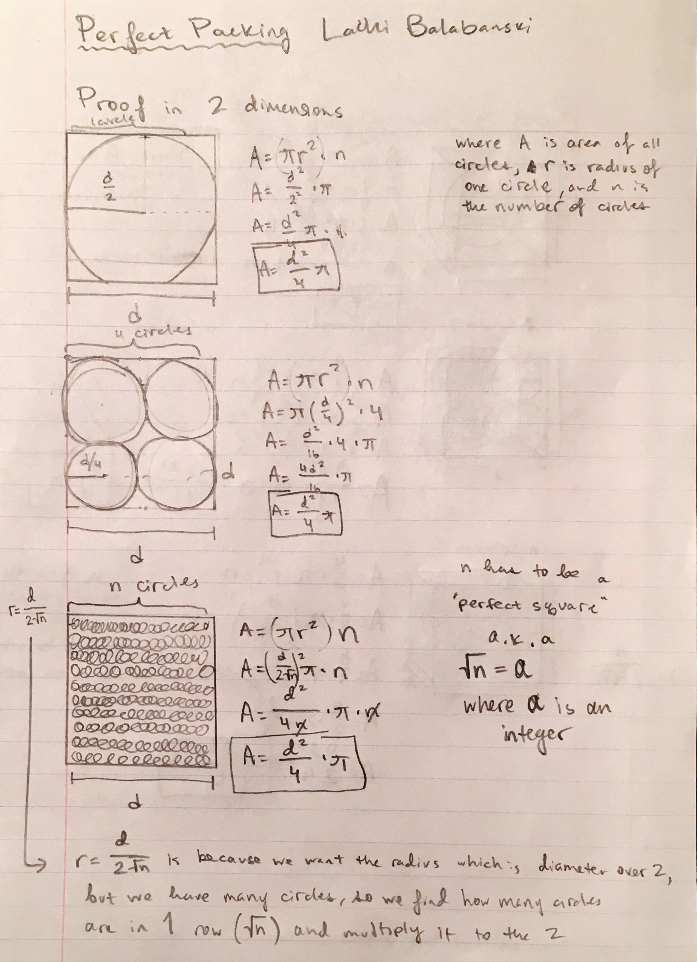 Perfect Packing Lachi Balabanski
Proof in 2 dimensions
1 circle
d/2
d
A = (πr²) · n
A = d²/2² · π
A = d²/4 π · 1
A = d²/4 π
where A is area of all
circles, r is radius of
one circle, and n is
the number of circles
4 circles
d/4
d
d
A = (πr²) · n
A = π(d/4)² · 4
A = d²/16 · 4 · π
A = 4d²/16 · π
A = d²/4 π
n circles
r = d/2√n
d
A = (πr²) n
A = (d/2√n)² π · n
A = d²/4n · π · n
A = d²/4 · π
n has to be a
"perfect square"
a.k.a
√n = a
where a is an
integer
r = d/2√n is because we want the radius which is diameter over 2,
but we have many circles, so we find how many circles
are in 1 row (√n) and multiply it to the 2